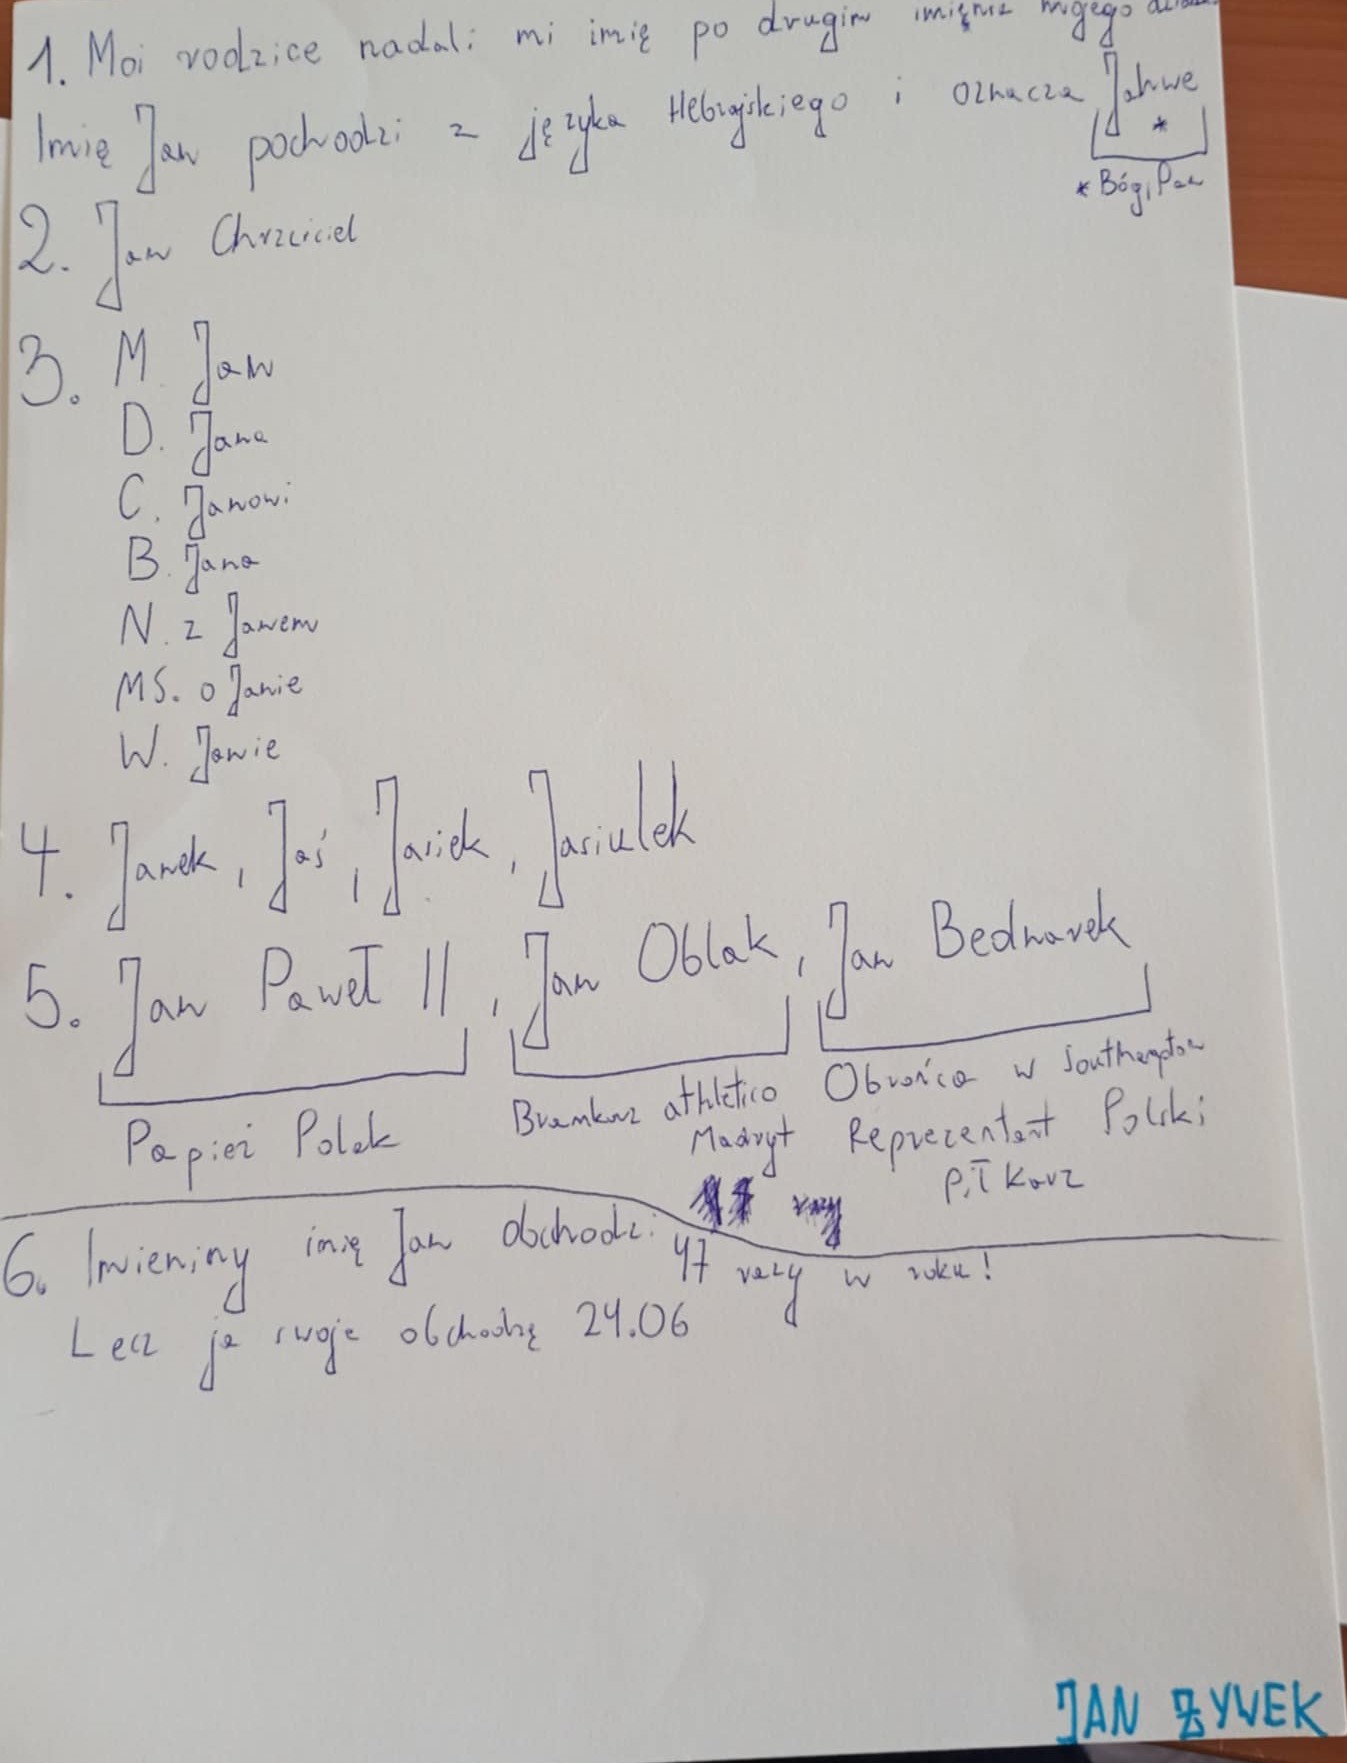 1. Moi rodzice nadali mi imię po drugim imieniu mojego
Imię Jan pochodzi z języka Hebrajskiego i oznacza Jahwe *
* Bóg, Pan
2. Jan Chrzciciel
3. M. Jan
D. Jana
C. Janowi
B. Jana
N. z Janem
MS. o Janie
W. Janie
4. Janek, Jaś, Jasiek, Jasiulek
5. Jan Paweł II, Jan Oblak, Jan Bednarek
Papież Polak
Bramkarz athletico
Madryt
Obrońca w Southampton
Reprezentant Polski
Piłkarz
6. Imieniny imię Jan obchodzi 47 razy w roku!
Lecz ja swoje obchodzę 24.06
JAN ŻYWEK